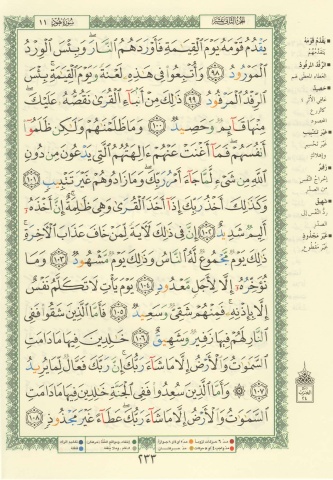 سورة هود ١١
يَقْدُمُ قَوْمَهُ يَوْمَ الْقِيَٰمَةِ فَأَوْرَدَهُمُ النَّارَ وَبِئْسَ الْوِرْدُ
الْمَوْرُودُ ٩٨ وَأُتْبِعُوا فِي هَٰذِهِ لَعْنَةً وَيَوْمَ الْقِيَٰمَةِ بِئْسَ
الرِّفْدُ الْمَرْفُودُ ٩٩ ذَٰلِكَ مِنْ أَنبَاءِ الْقُرَىٰ نَقُصُّهُ عَلَيْكَ
مِنْهَا قَائِمٌ وَحَصِيدٌ ١٠٠ وَمَا ظَلَمْنَٰهُمْ وَلَٰكِن ظَلَمُوا
أَنفُسَهُمْ فَمَا أَغْنَتْ عَنْهُمْ ءَالِهَتُهُمُ الَّتِي يَدْعُونَ مِن دُونِ
اللَّهِ مِن شَيْءٍ لَّمَّا جَاءَ أَمْرُ رَبِّكَ وَمَا زَادُوهُمْ غَيْرَ تَتْبِيبٍ ١٠١
وَكَذَٰلِكَ أَخْذُ رَبِّكَ إِذَا أَخَذَ الْقُرَىٰ وَهِيَ ظَٰلِمَةٌ إِنَّ أَخْذَهُ
أَلِيمٌ شَدِيدٌ ١٠٢ إِنَّ فِي ذَٰلِكَ لَءَايَةً لِّمَنْ خَافَ عَذَابَ الْءَاخِرَةِ
ذَٰلِكَ يَوْمٌ مَّجْمُوعٌ لَّهُ النَّاسُ وَذَٰلِكَ يَوْمٌ مَّشْهُودٌ ١٠٣ وَمَا
نُؤَخِّرُهُ إِلَّا لِأَجَلٍ مَّعْدُودٍ ١٠٤ يَوْمَ يَأْتِ لَا تَكَلَّمُ نَفْسٌ
إِلَّا بِإِذْنِهِ فَمِنْهُمْ شَقِيٌّ وَسَعِيدٌ ١٠٥ فَأَمَّا الَّذِينَ شَقُوا فَفِي
النَّارِ لَهُمْ فِيهَا زَفِيرٌ وَشَهِيقٌ ١٠٦ خَٰلِدِينَ فِيهَا مَا دَامَتِ
السَّمَٰوَٰتُ وَالْأَرْضُ إِلَّا مَا شَاءَ رَبُّكَ إِنَّ رَبَّكَ فَعَّالٌ لِّمَا يُرِيدُ
١٠٧ وَأَمَّا الَّذِينَ سُعِدُوا فَفِي الْجَنَّةِ خَٰلِدِينَ فِيهَا مَا دَامَتِ
السَّمَٰوَٰتُ وَالْأَرْضُ إِلَّا مَا شَاءَ رَبُّكَ عَطَاءً غَيْرَ مَجْذُوذٍ ١٠٨
٢٣٣
يَقْدُمُ قَوْمَهُ
يتقدمهم
الرفد المرفود
حصيد
غير تتبيب
زفير
شهيق
غير مجذوذ
غير مقطوع